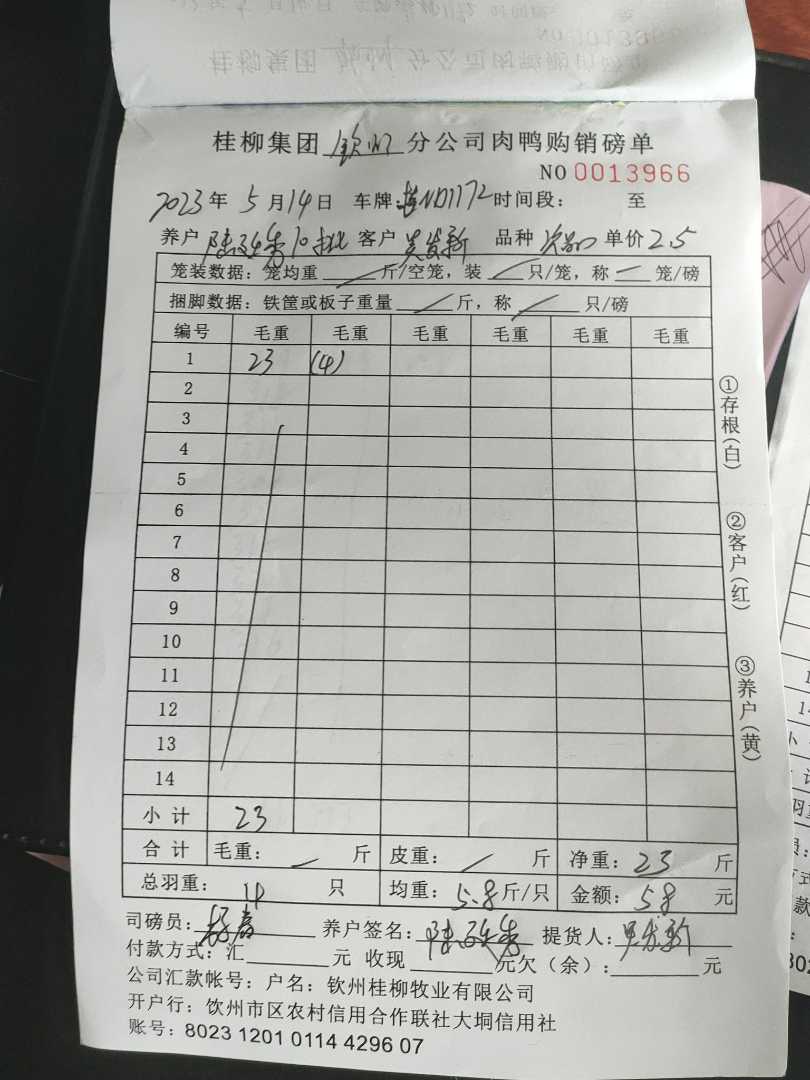 桂柳集团 钦州 分公司肉鸭购销磅单
NO 0013966
2023年 5月14日 车牌: ND1172 时间段: 至
养户 陆 10批 客户 吴发新 品种 次品 单价 2.5
笼装数据: 笼均重 斤/空笼, 装 只/笼, 称 笼/磅
捆脚数据: 铁筐或板子重量 斤, 称 只/磅
编号 毛重 毛重 毛重 毛重 毛重 毛重
1 23 (4)
2
3
4
5
6
7
8
9
10
11
12
13
14
小计 23
合计 毛重: 斤 皮重: 斤 净重: 23 斤
总羽重: 4 只 均重: 5.8 斤/只 金额: 58 元
司磅员: 养户签名: 陆 提货人: 吴发新
付款方式: 汇 元 收现 元欠(余): 元
公司汇款帐号: 户名: 钦州桂柳牧业有限公司
开户行: 饮州市区农村信用合作联社大垌信用社
账号: 8023 1201 0114 4296 07
①存根(白)
②客户(红)
③养户(黄)